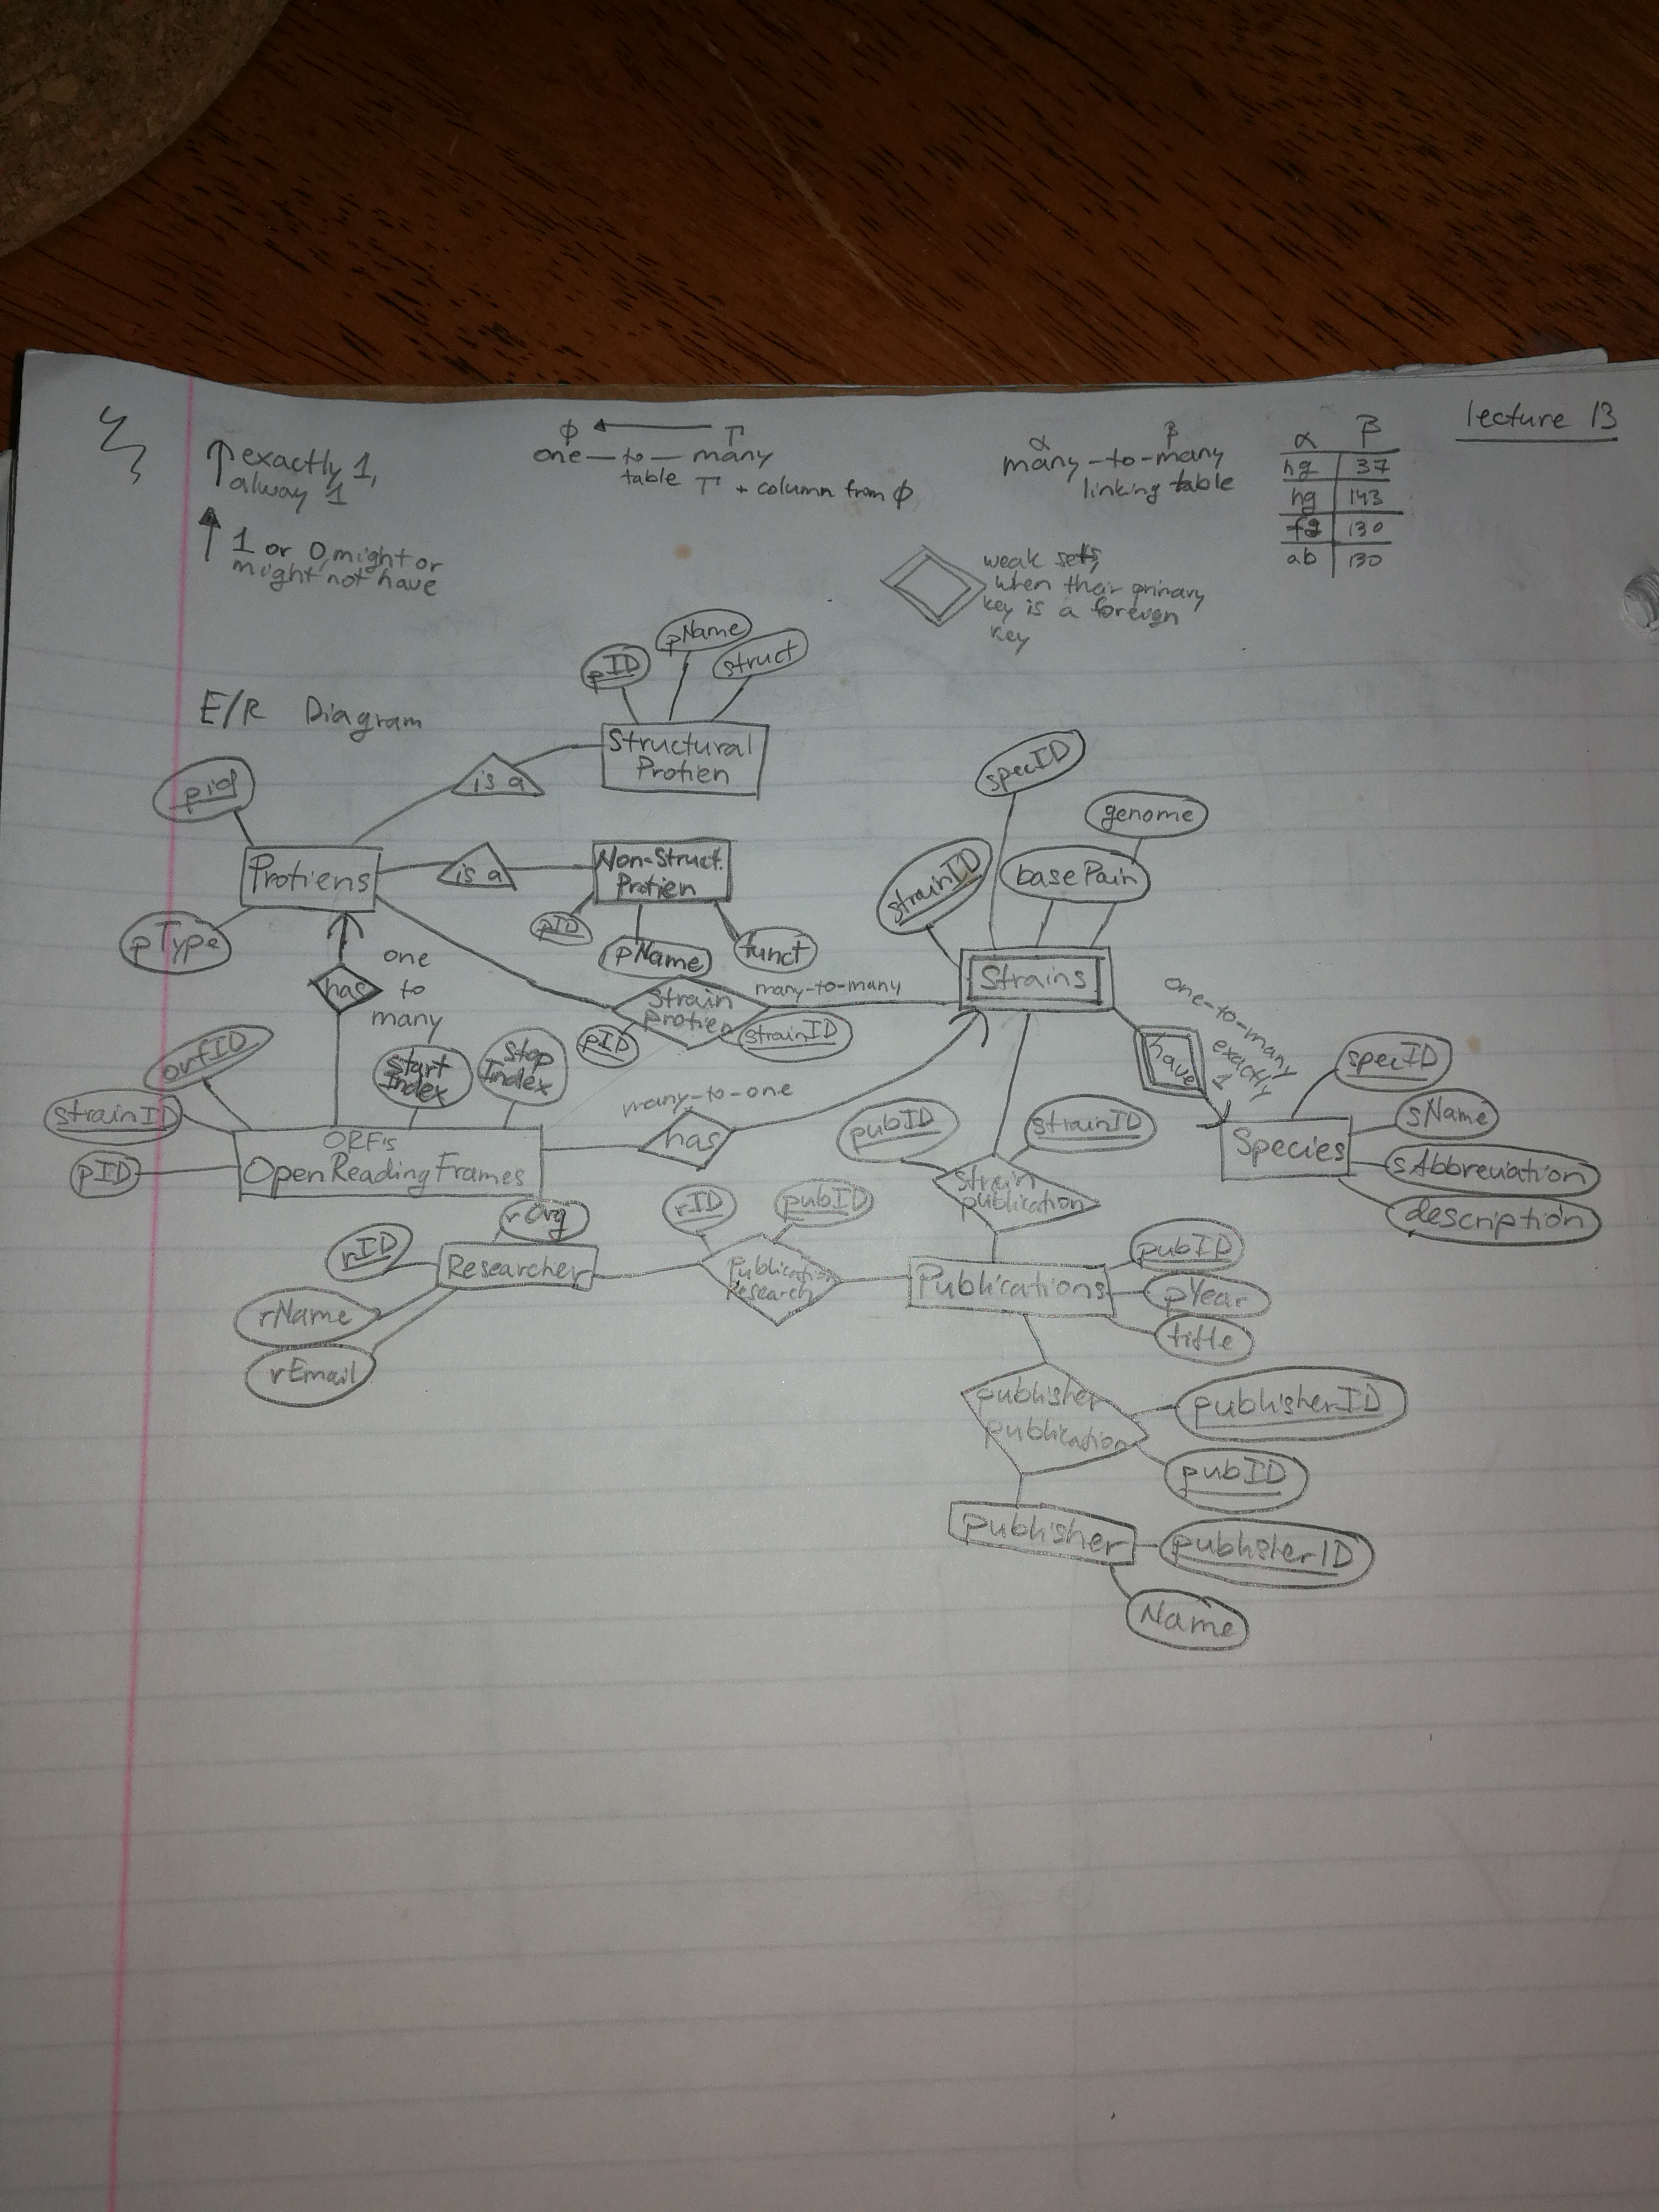 lecture 13
↑ exactly 1,
alway 1
↑ 1 or 0, might or
might not have
ϕ ← T
one — to — many
table T + column from ϕ
α β
many-to-many
linking table
α β
hg 37
hg 143
fg 130
ab 130
weak sets,
when their primary
key is a foreign
key
E/R Diagram
pID
pName
struct
Structural
Protien
is a
pid
Protiens
pType
is a
Non-Struct.
Protien
pID
pName
funct
specID
genome
strainID
basePair
Strains
has
one
to
many
Strain
protien
many-to-many
pID
strainID
one-to-many
exactly
1
have
specID
sName
sAbbreviation
description
Species
orfID
strainID
pID
start
Index
Stop
Index
ORF's
OpenReadingFrames
many-to-one
has
pubID
strainID
strain
publication
rOrg
rID
rName
rEmail
Researcher
rID
pubID
Publication
Research
Publications
pubID
pYear
title
publisher
publication
publisherID
pubID
publisher
publisherID
Name